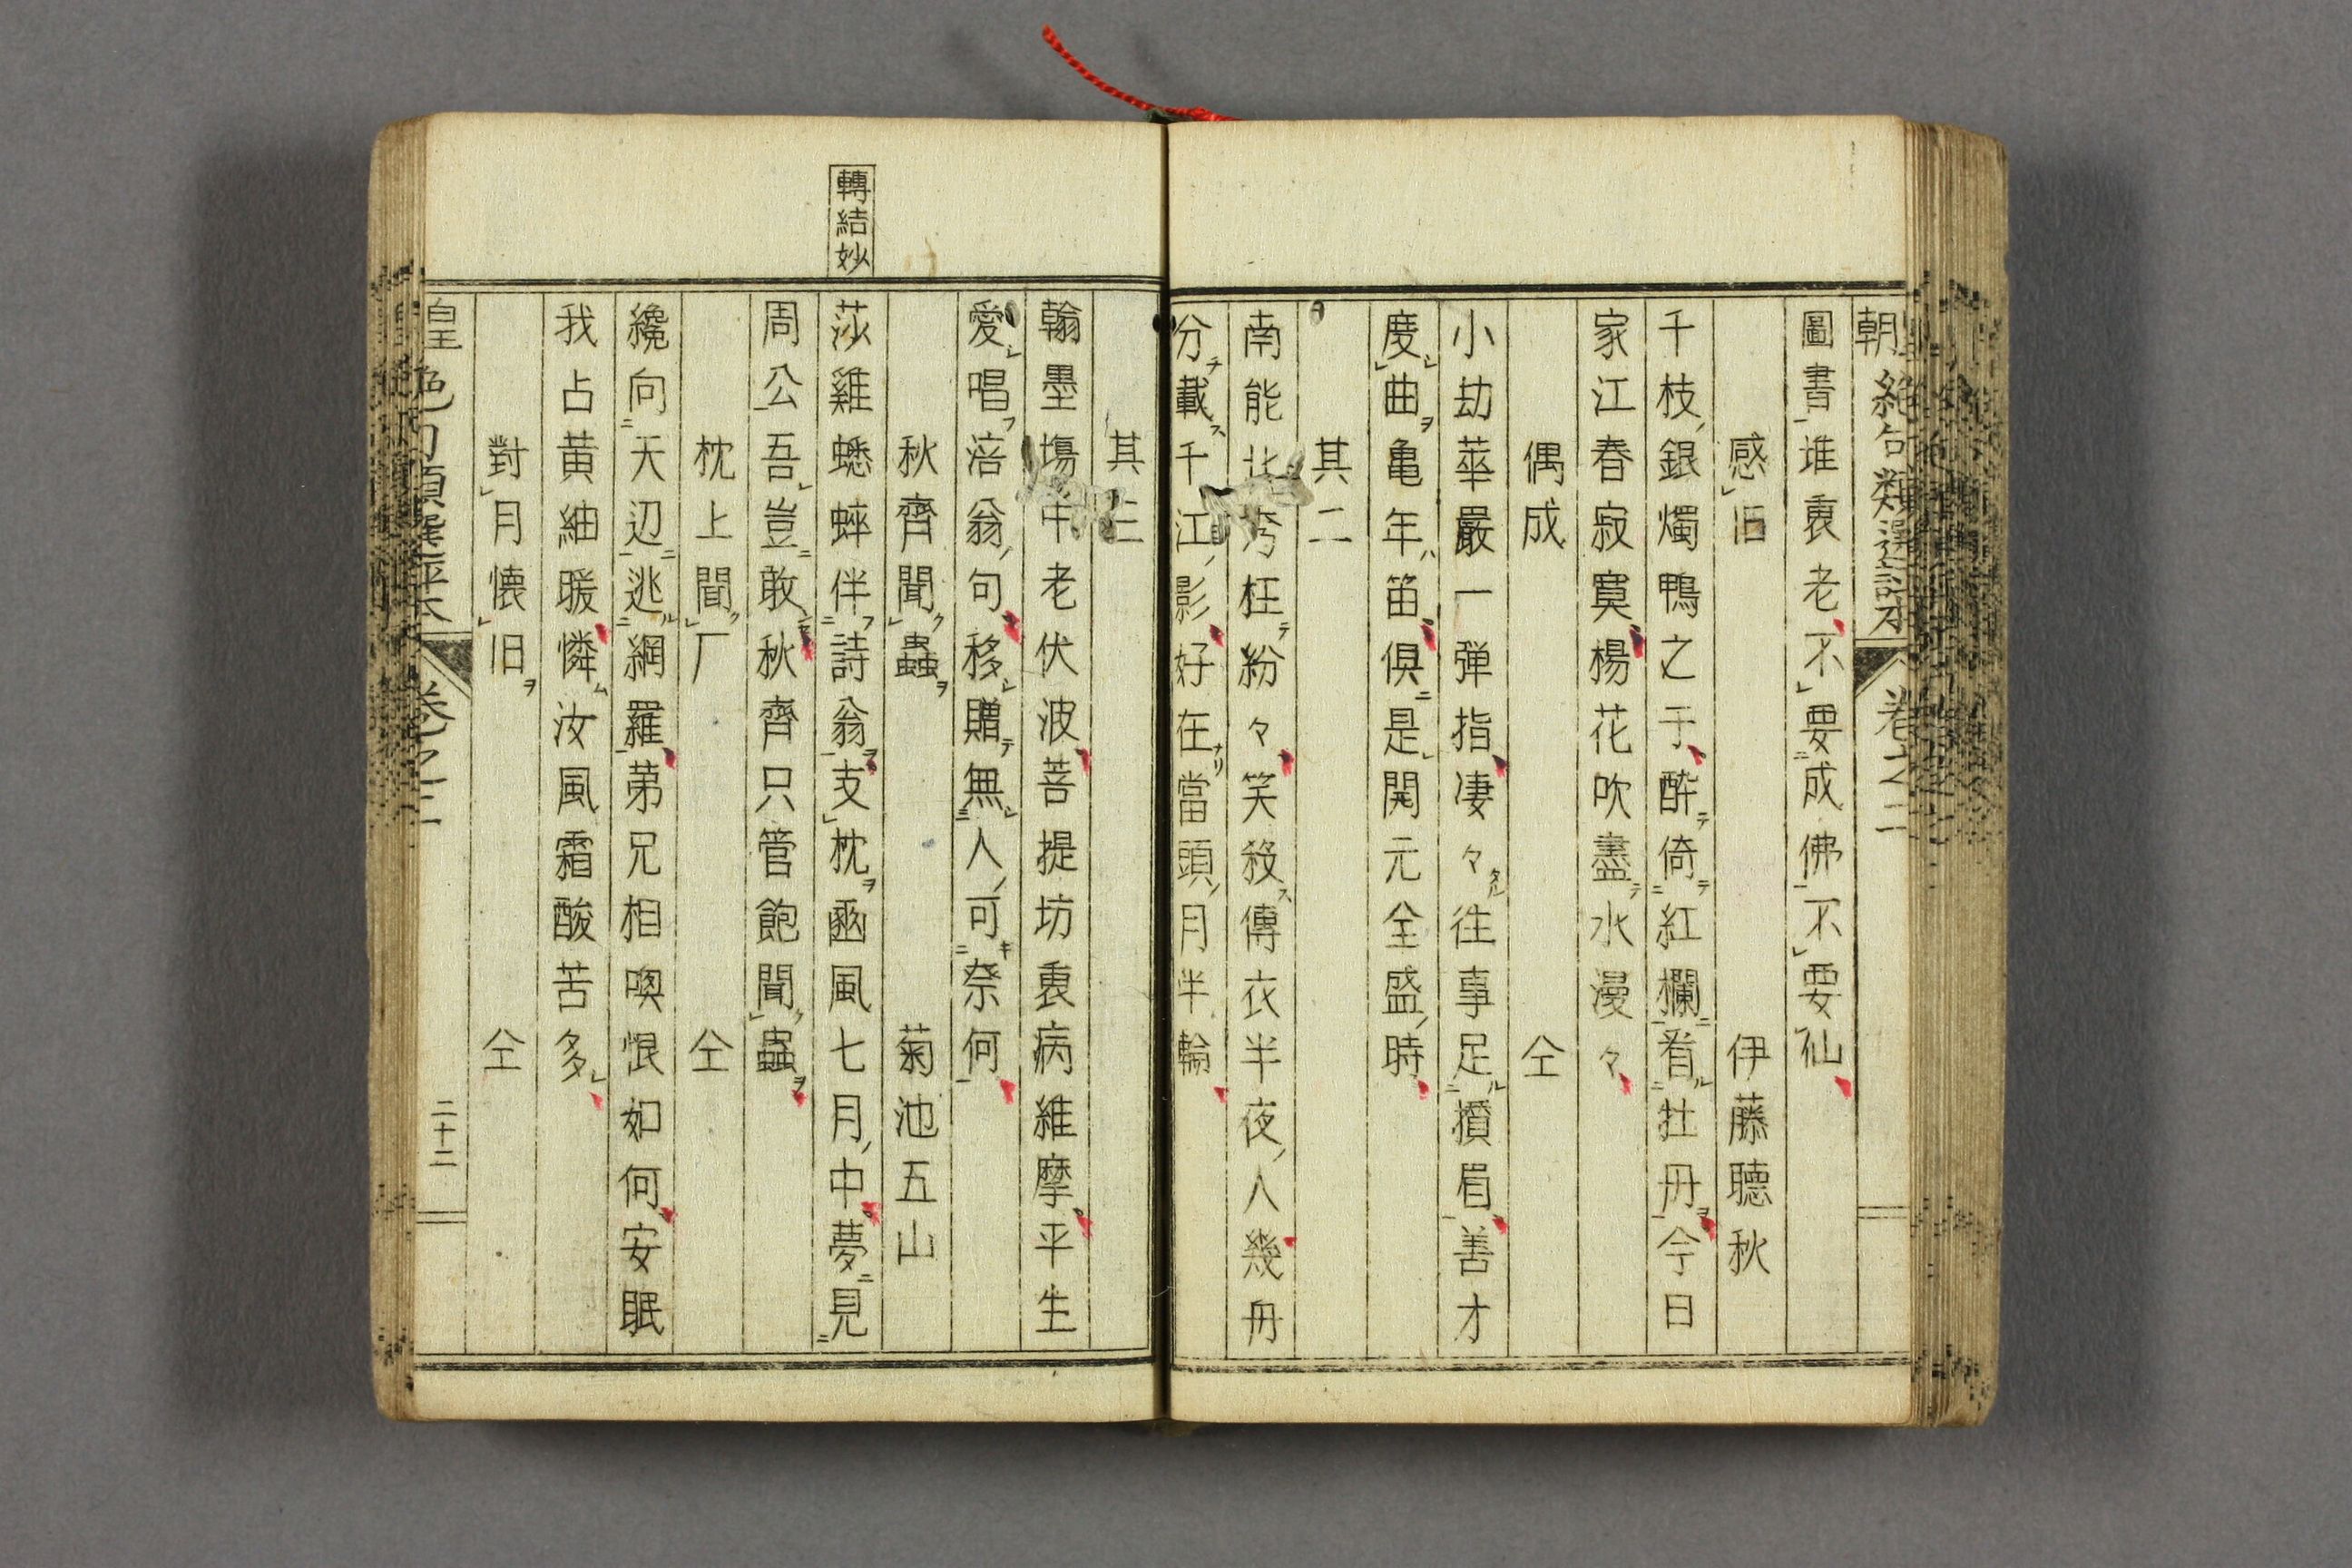 朝絶句類選評本 卷之二
圖書堆裏老不要成佛不要仙
感旧 伊藤聽秋
千枝銀燭鴨之于酔倚紅欄看牡丹今日
家江春寂寞楊花吹盡水漫々
偶成 仝
小劫華嚴一弾指凄々往事足攢眉善才
度曲亀年笛倶是開元全盛時
其二
南能北秀枉紛々笑殺傳衣半夜人幾舟
分載千江影好在當頭月半輪
其三
翰墨塲中老伏波菩提坊裏病維摩平生
愛唱涪翁句移贈無人可奈何
秋齊聞蟲 菊池五山
轉結妙
莎雞蟋蟀伴詩翁支枕豳風七月中夢見
周公吾豈敢秋齊只管飽聞蟲
枕上聞厂 仝
纔向天辺逃網羅苐兄相喚恨如何安眠
我占黄紬暖憐汝風霜酸苦多
對月懐旧 仝
皇 卷之二 二十二